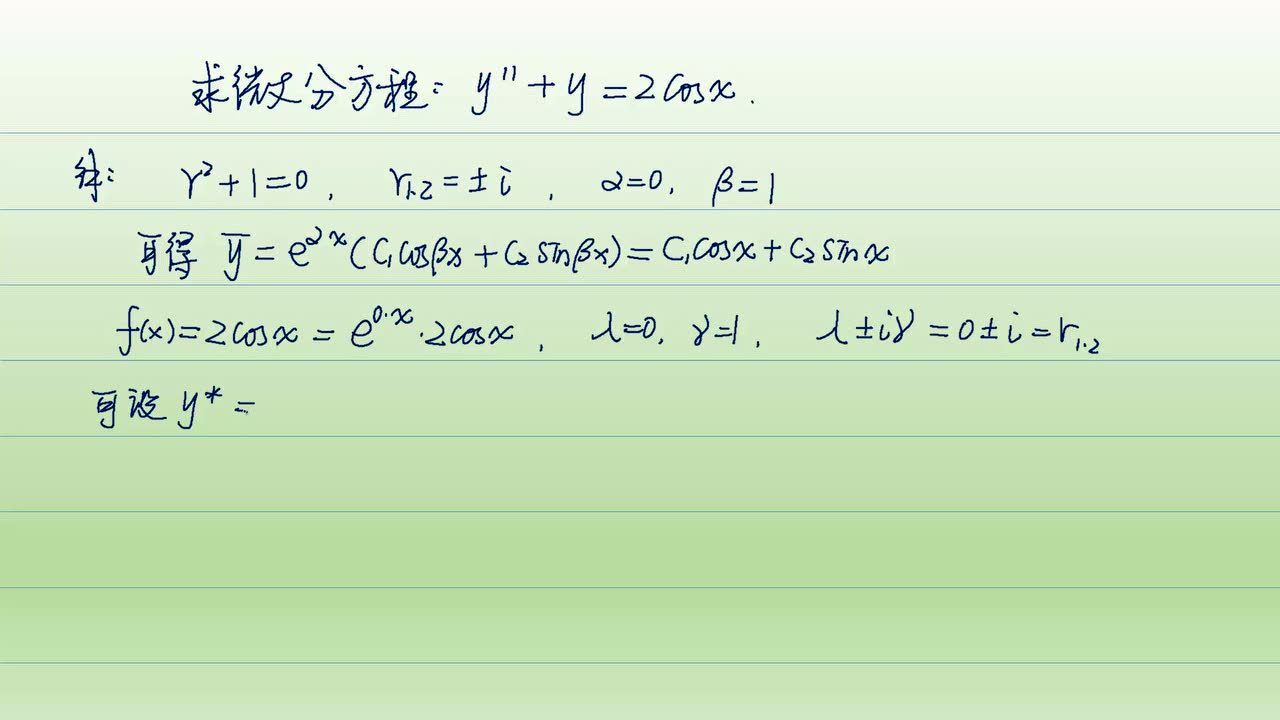 求微分方程: y'' + y = 2cosx.
解: r²+1=0, r₁.₂=±i, α=0, β=1
可得 ȳ = e^{αx}(C₁cosβx + C₂sinβx) = C₁cosx + C₂sinx
f(x)=2cosx = e^{0·x}·2cosx, λ=0, γ=1, λ±iγ = 0±i = r₁.₂
可设 y* =